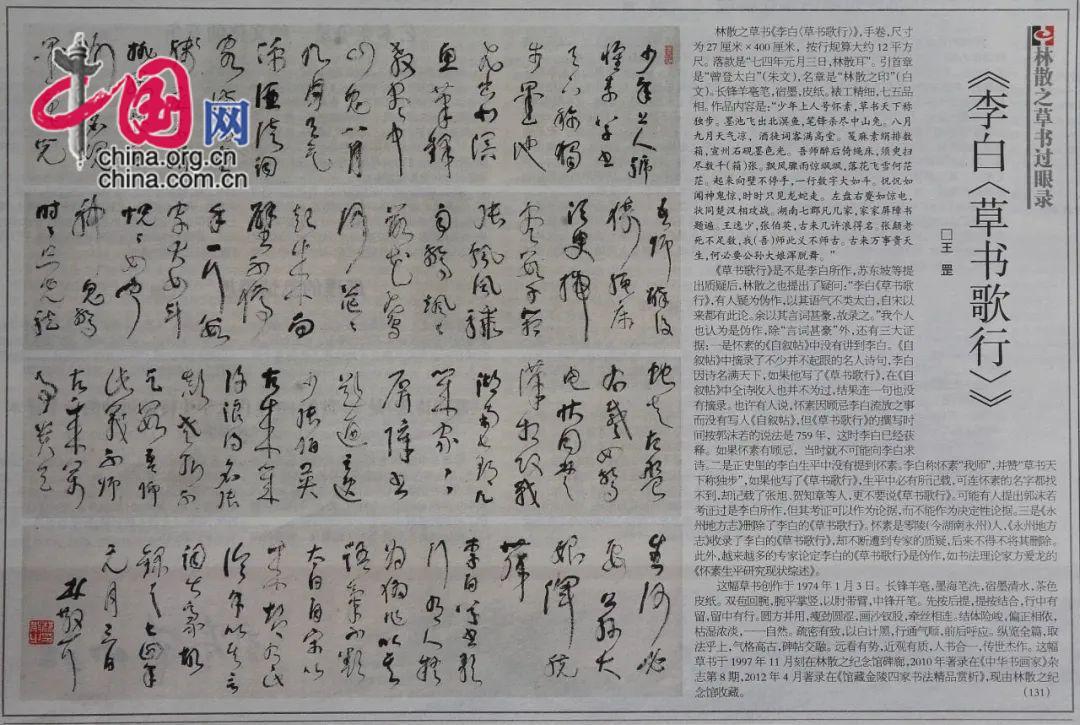 中国网
china.org.cn
china.com.cn
少年上人號
懷素草書
天下稱獨
步墨池
飛出北溟
魚筆鋒
殺盡中
山兔八月
九月天氣
涼酒徒詞
吾師醉後
倚繩床
須臾掃
盡數千箱
張飄風驟
雨驚颯〻
落花飛雪
何茫〻
起來向
壁不停
手一行數
字大如斗
怳〻如聞
神鬼驚
時〻只見龍
蛇走左盤
右蹙如驚
電狀同楚
漢相攻戰
湖南七郡凡
幾家家〻
屏障書
題遍王逸
少張伯英
古來幾
許浪得名張
顛老死不
足數吾師
此義不師
古來萬
事貴天
生何必
要公孫大
娘渾脫
舞
李白草書歌
行有人疑
為偽作以其
語氣不類
太白自宋以
來都有此
論余以其言
詞甚豪故
錄之七四年
元月三日
林散耳
林散之草书过眼录
《李白〈草书歌行〉》
□王 罡
林散之草书《李白〈草书歌行〉》,手卷,尺寸
为27厘米×400厘米,按行规算大约12平方
尺。落款是“七四年元月三日,林散耳”。引首章
是“曾登太白”(朱文),名章是“林散之印”(白
文)。长锋羊毫笔,宿墨,皮纸。裱工精细,七五品
相。作品内容是:“少年上人号怀素,草书天下称
独步。墨池飞出北溟鱼,笔锋杀尽中山兔。八月
九月天气凉,酒徒词客满高堂。笺麻素绢排数
箱,宣州石砚墨色光。吾师醉后倚绳床,须臾扫
尽数千(箱)张。飘风骤雨惊飒飒,落花飞雪何茫
茫。起来向壁不停手,一行数字大如斗。怳怳如
闻神鬼惊,时时只见龙蛇走。左盘右蹙如惊电,
状同楚汉相攻战。湖南七郡凡几家,家家屏障书
题遍。王逸少,张伯英,古来几许浪得名。张颠老
死不足数,我(吾)师此义不师古。古来万事贵天
生,何必要公孙大娘浑脱舞。”
《草书歌行》是不是李白所作,苏东坡等提
出质疑后,林散之也提出了疑问:“李白《草书歌
行》,有人疑为伪作,以其语气不类太白,自宋以
来都有此论。余以其言词甚豪,故录之。”我个人
也认为是伪作,除“言词甚豪”外,还有三大证
据:一是怀素的《自叙帖》中没有讲到李白。《自
叙帖》中摘录了不少并不起眼的名人诗句,李白
因诗名满天下,如果他写了《草书歌行》,在《自
叙帖》中全诗收入也并不为过,结果连一句也没
有摘录。也许有人说,怀素因顾忌李白流放之事
而没有写入《自叙帖》,但《草书歌行》的撰写时
间按郭沫若的说法是759年,这时李白已经获
释。如果怀素有顾忌,当时就不可能向李白求
诗。二是正史里的李白生平中没有提到怀素。李白称怀素“我师”,并赞“草书天
下称独步”,如果他写了《草书歌行》,生平中必有所记载,可连怀素的名字都找
不到,却记载了张旭、贺知章等人,更不要说《草书歌行》。可能有人提出郭沫若
考证过是李白所作,但其考证可以作为论据,而不能作为决定性论据。三是《永
州地方志》删除了李白的《草书歌行》。怀素是零陵(今湖南永州)人,《永州地方
志》收录了李白的《草书歌行》,却不断遭到专家的质疑,后来不得不将其删除。
此外,越来越多的专家论定李白的《草书歌行》是伪作,如书法理论家方爱龙的
《怀素生平研究现状综述》。
这幅草书创作于1974年1月3日。长锋羊毫,墨海笔洗,宿墨清水,茶色
皮纸。双苞回腕,腕平掌竖,以肘带臂,中锋开笔。先按后提,提按结合,行中有
留,留中有行。圆方并用,瘦劲圆涩,画沙钗股,牵丝相连。结体险峻,偏正相依,
枯湿浓淡,一一自然。疏密有致,以白计黑,行通气顺,前后呼应。纵览全篇,取
法乎上,气格高古,碑帖交融。远看有势,近观有质,人书合一,传世杰作。这幅
草书于1997年11月刻在林散之纪念馆碑廊,2010年著录在《中华书画家》杂
志第8期,2012年4月著录在《馆藏金陵四家书法精品赏析》,现由林散之纪
念馆收藏。
(131)